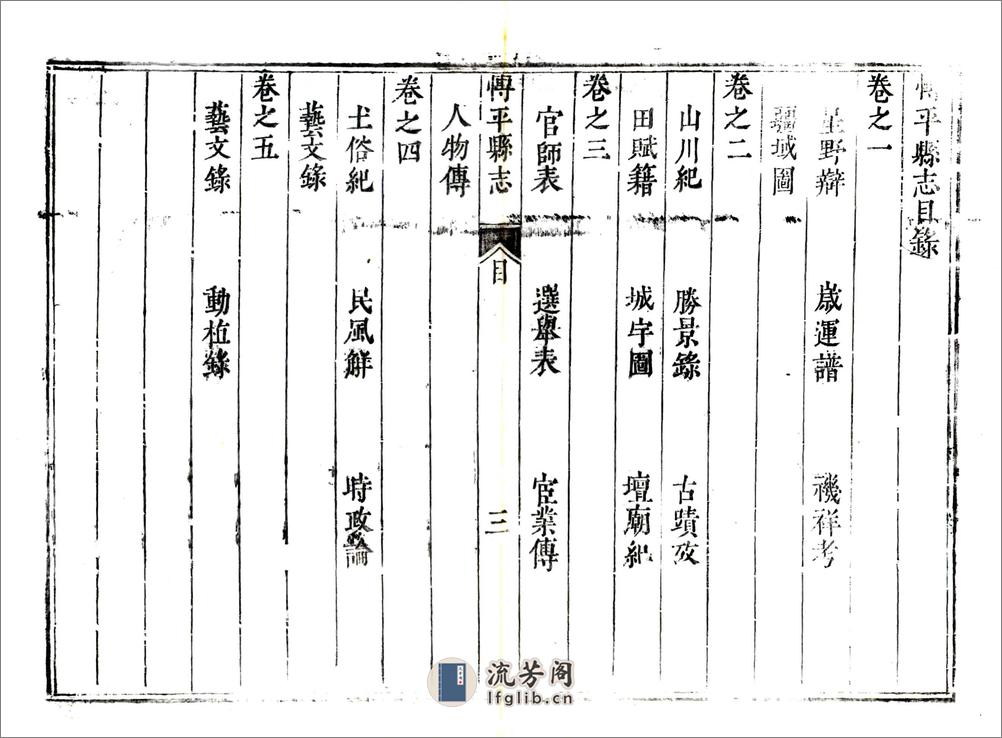 博平縣志目錄
卷之一
星野辯 歲運譜 禨祥考
疆域圖
卷之二
山川紀 勝景錄 古蹟攷
田賦籍 城宇圖 壇廟紀
卷之三
官師表 選舉表 宦業傳
博平縣志 目 三
人物傳
卷之四
土俗紀 民風觧 時政論
藝文錄
卷之五
藝文錄 動植錄
流芳阁
lfglib.cn